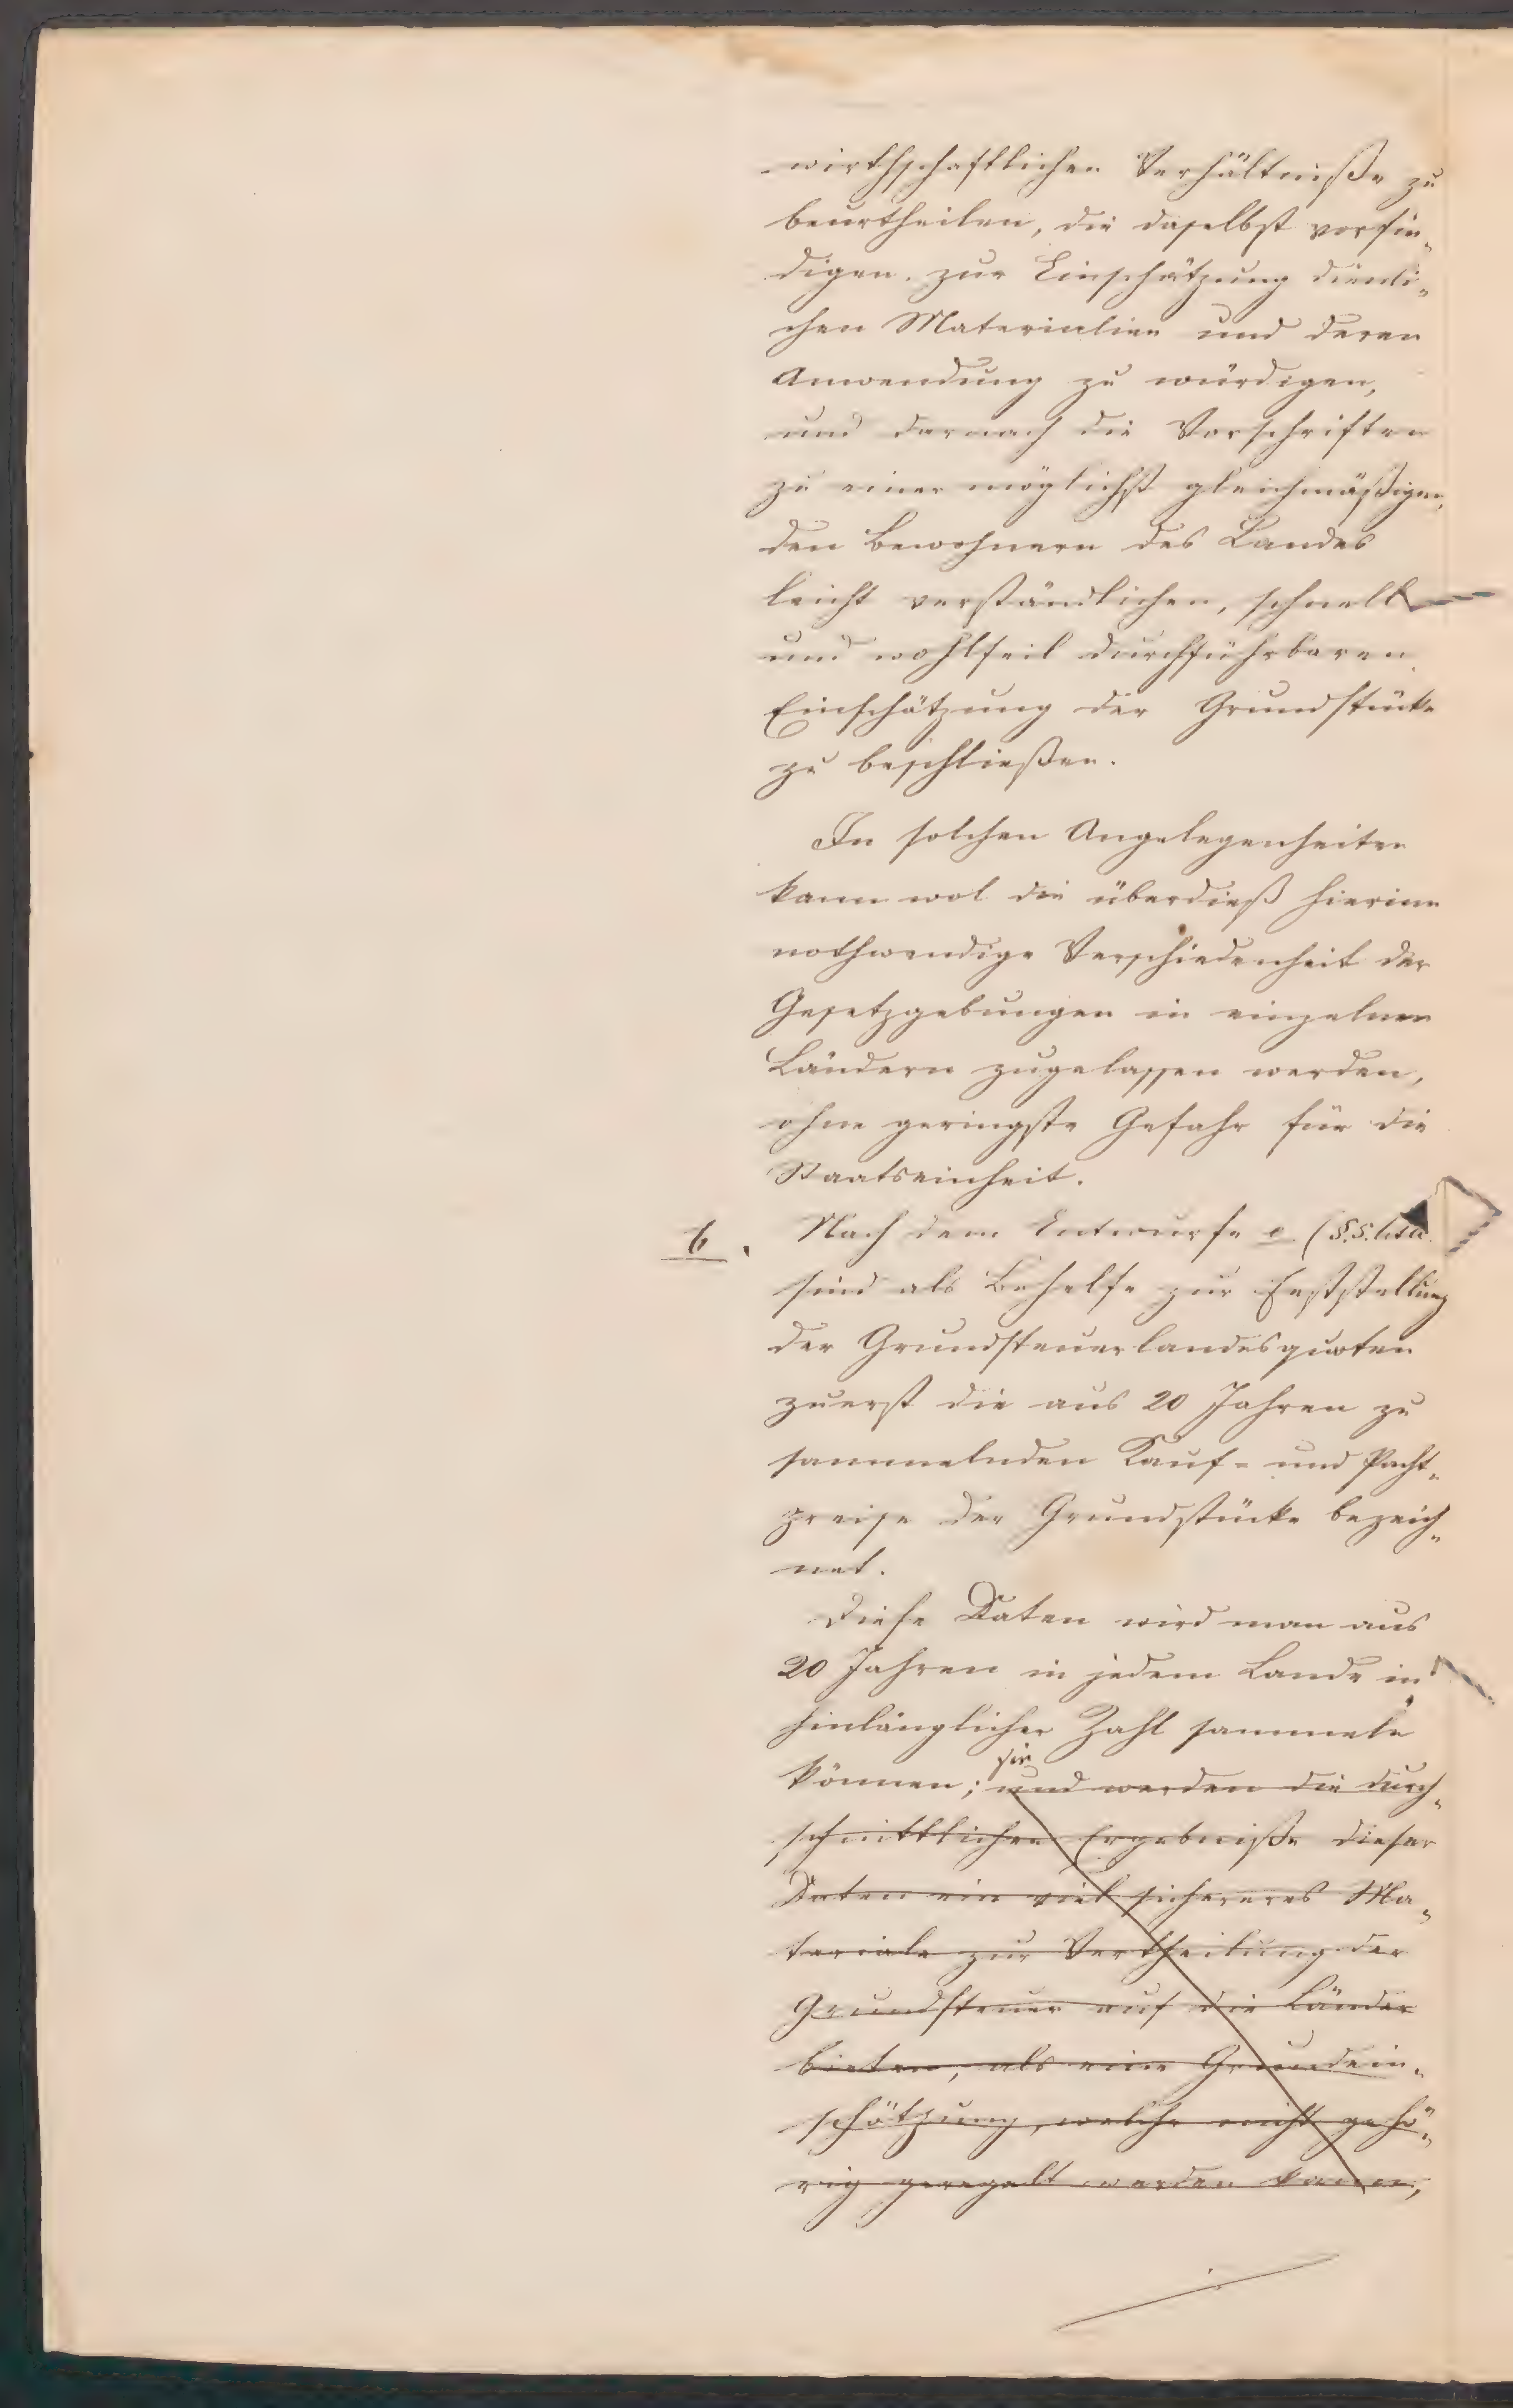 wirthschaftlichen Verhältniße zu
beurtheilen, die daselbst vorfin„
digen zur Einschätzung dienli„
chen Materialien und deren
Anwendung zu würdigen,
und darnach die Vorschriften
zu einer möglichst gleichmäßigen,
den Bewohnern des Landes
leicht verständlichen, schnell
und wohlfeil durchführbaren
Einschätzung der Grundstücke
zu beschließen.
In solchen Angelegenheiten
kann wol die überdieß hierinn
nothwendige Verschiedenheit der
Gesetzgebungen in einzelnen
Ländern zugelassen werden,
ohne geringste Gefahr für die
Staatseinheit.
6. Nach dem Entwurfe e (§.§.
sind als Behelfe zur Feststellung
der Grundsteuerlandesquoten
zuerst die aus 20 Jahren zu
sammelnden Kauf- und Pacht„
preise der Grundstücke bezeich„
net.
Diese Daten wird man aus
20 Jahren in jedem Lande in
hinlänglicher Zahl sammeln
sie
können; und werden die durch„
schnittlichen Ergebniße dieser
Daten ein viel sichereres Ma„
teriale zur Vertheilung der
Grundsteuer auf die Länder
bieten, als eine Grundein„
schätzung, welche nicht gehö„
rig geregelt werden kann,